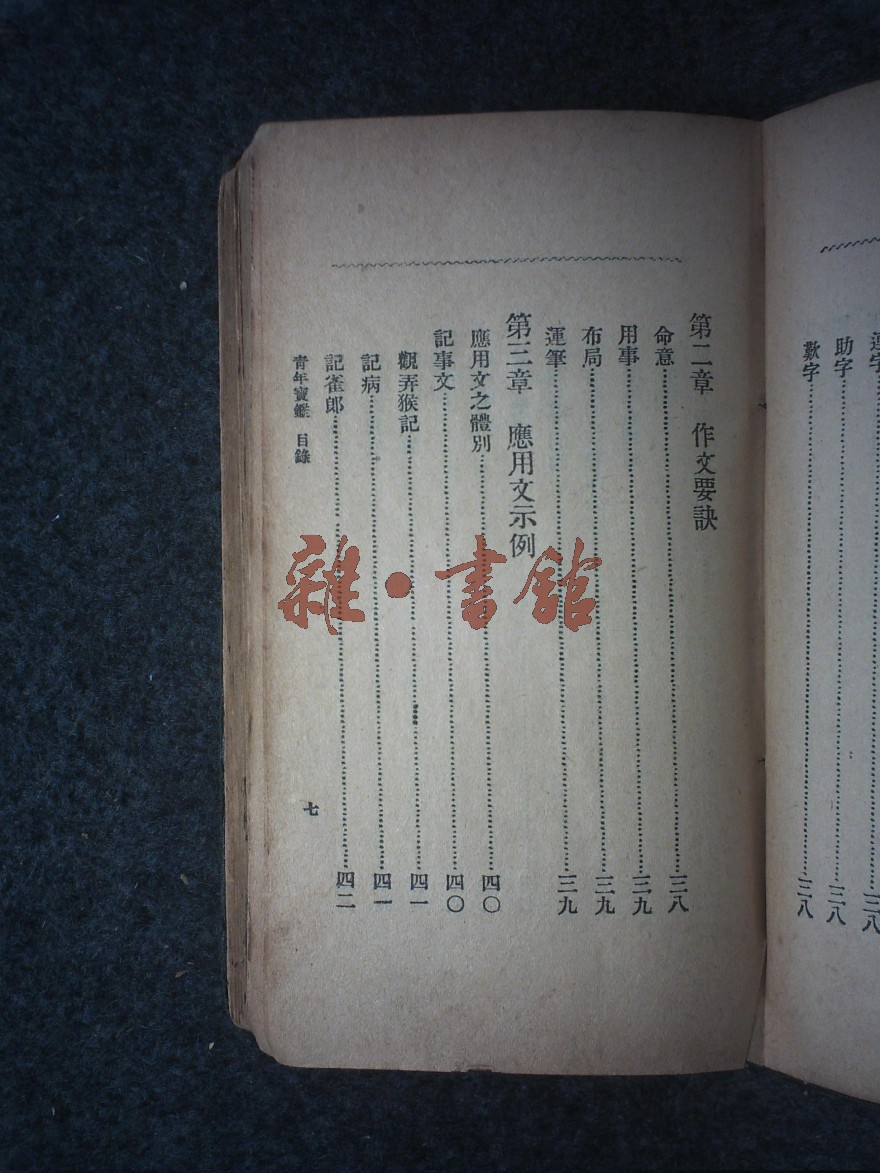 連字……三八
助字……三八
歎字……三八
第二章　作文要訣
命意……三八
用事……三九
布局……三九
運筆……三九
第三章　應用文示例
應用文之體別……四〇
記事文……四〇
觀弄猴記……四一
記病……四一
記雀郎……四二
青年寶鑑　目錄
七
雜·書館